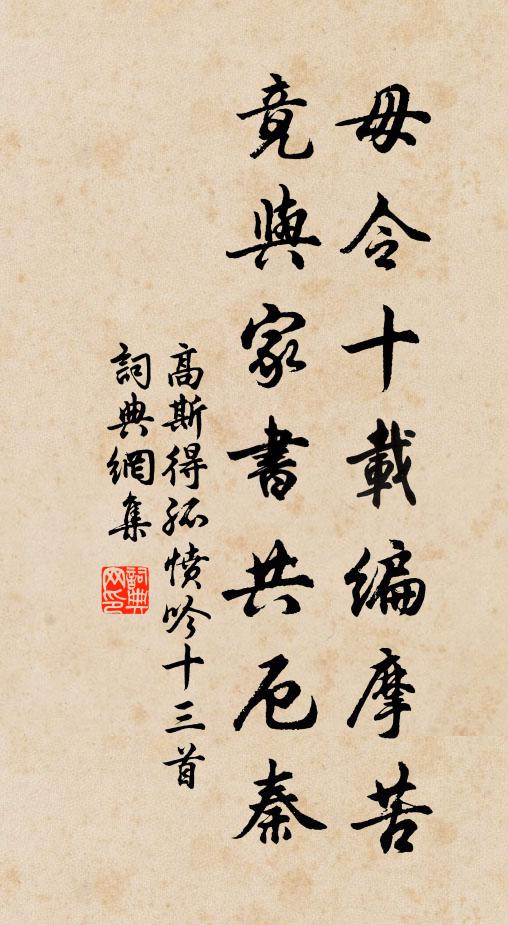 毋令十載編摩苦
竟與家書共厄秦
高斯得孤憤吟十三首
詞典網集
詞典網印